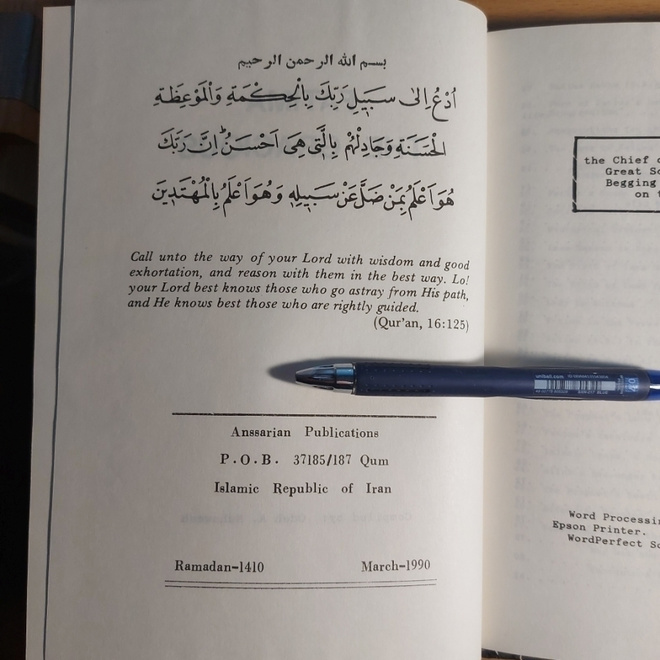 بسم الله الرحمن الرحيم
اُدْعُ اِلىٰ سَبيٖلِ رَبِّكَ بِالْحِكْمَةِ وَالْمَوْعِظَةِ
الْحَسَنَةِ وَجَادِلْهُمْ بِالَّتيٖ هِىَ اَحْسَنُ اِنَّ رَبَّكَ
هُوَ اَعْلَمُ بِمَنْ ضَلَّ عَنْ سَبيٖلِهٖ وَهُوَ اَعْلَمُ بِالْمُهْتَديٖنَ
Call unto the way of your Lord with wisdom and good
exhortation, and reason with them in the best way. Lo!
your Lord best knows those who go astray from His path,
and He knows best those who are rightly guided.
(Qur'an, 16:125)
Anssarian Publications
P.O.B. 37185/187 Qum
Islamic Republic of Iran
Ramadan-1410 March-1990
the Chief
Great
Begging
on
uniball.com
Word
Epson Printer.
WordPerfect